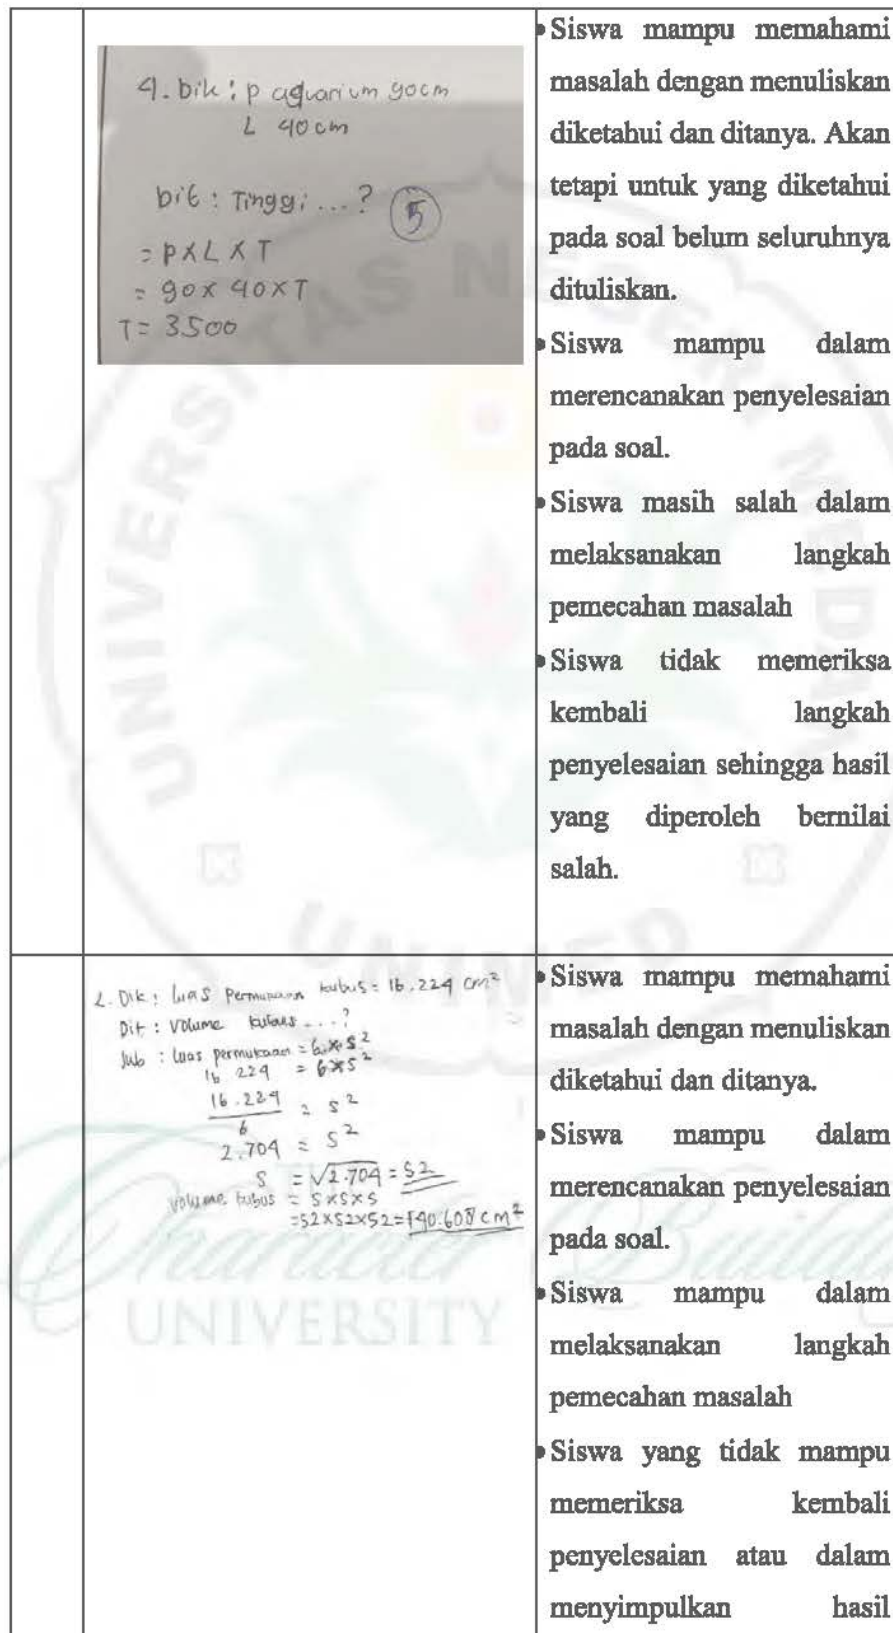 4. Dik : P aquarium 90cm
L 40 cm
Dit : Tinggi ...?
5
= P X L X T
= 90 X 40 X T
T = 3500
• Siswa mampu memahami
masalah dengan menuliskan
diketahui dan ditanya. Akan
tetapi untuk yang diketahui
pada soal belum seluruhnya
dituliskan.
• Siswa mampu dalam
merencanakan penyelesaian
pada soal.
• Siswa masih salah dalam
melaksanakan langkah
pemecahan masalah
• Siswa tidak memeriksa
kembali langkah
penyelesaian sehingga hasil
yang diperoleh bernilai
salah.
2. Dik : luas Permukaan kubus = 16.224 cm²
Dit : Volume kubus ...?
Jwb : luas permukaan = 6 x s²
16 224 = 6 x s²
16.224 / 6 = s²
2.704 = s²
S = √2.704 = 52
Volume kubus = S x S x S
= 52 x 52 x 52 = 140.608 cm²
• Siswa mampu memahami
masalah dengan menuliskan
diketahui dan ditanya.
• Siswa mampu dalam
merencanakan penyelesaian
pada soal.
• Siswa mampu dalam
melaksanakan langkah
pemecahan masalah
• Siswa yang tidak mampu
memeriksa kembali
penyelesaian atau dalam
menyimpulkan hasil
UNIVERSITAS NEGERI MEDAN
UNIMED
THE
Character Build
UNIVERSITY